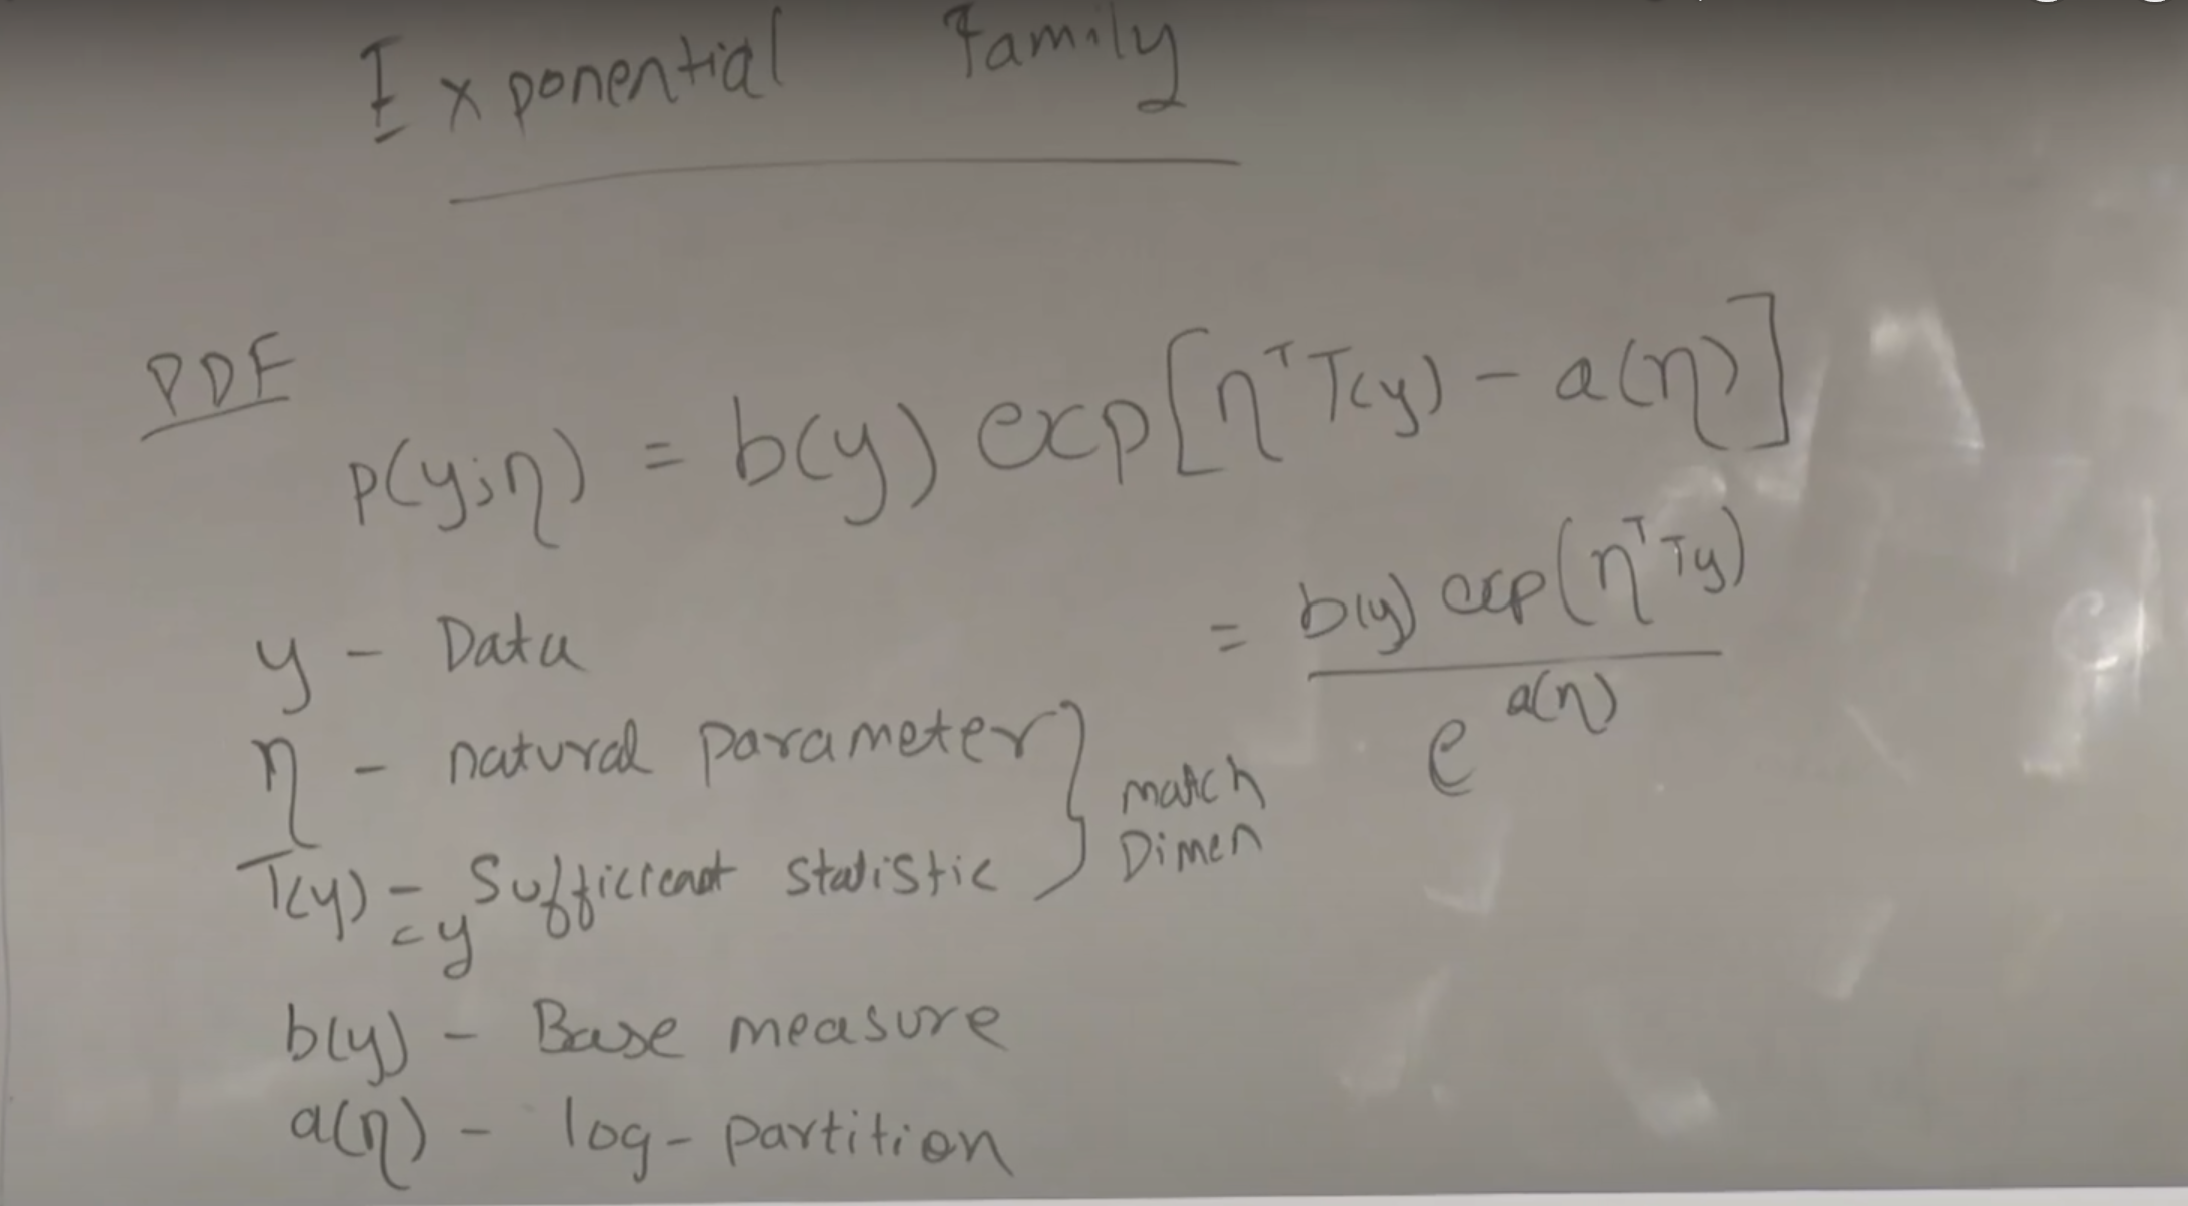 Exponential Family
PDF
p(y;η) = b(y) exp[η^T T(y) - a(η)]
= b(y) exp(η^T Ty) / e^a(η)
y - Data
η - natural parameter } match Dimen
T(y) - Sufficient statistic
= y
b(y) - Base measure
a(η) - log-partition